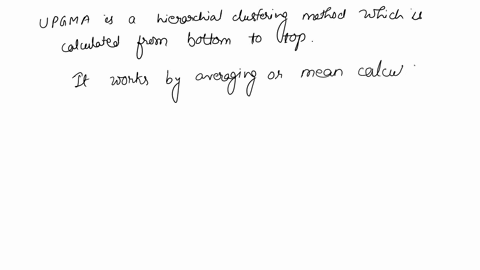 UPGMA is a hierarchial clustering method which is
calculated from bottom to top.
It works by averaging or mean calcu